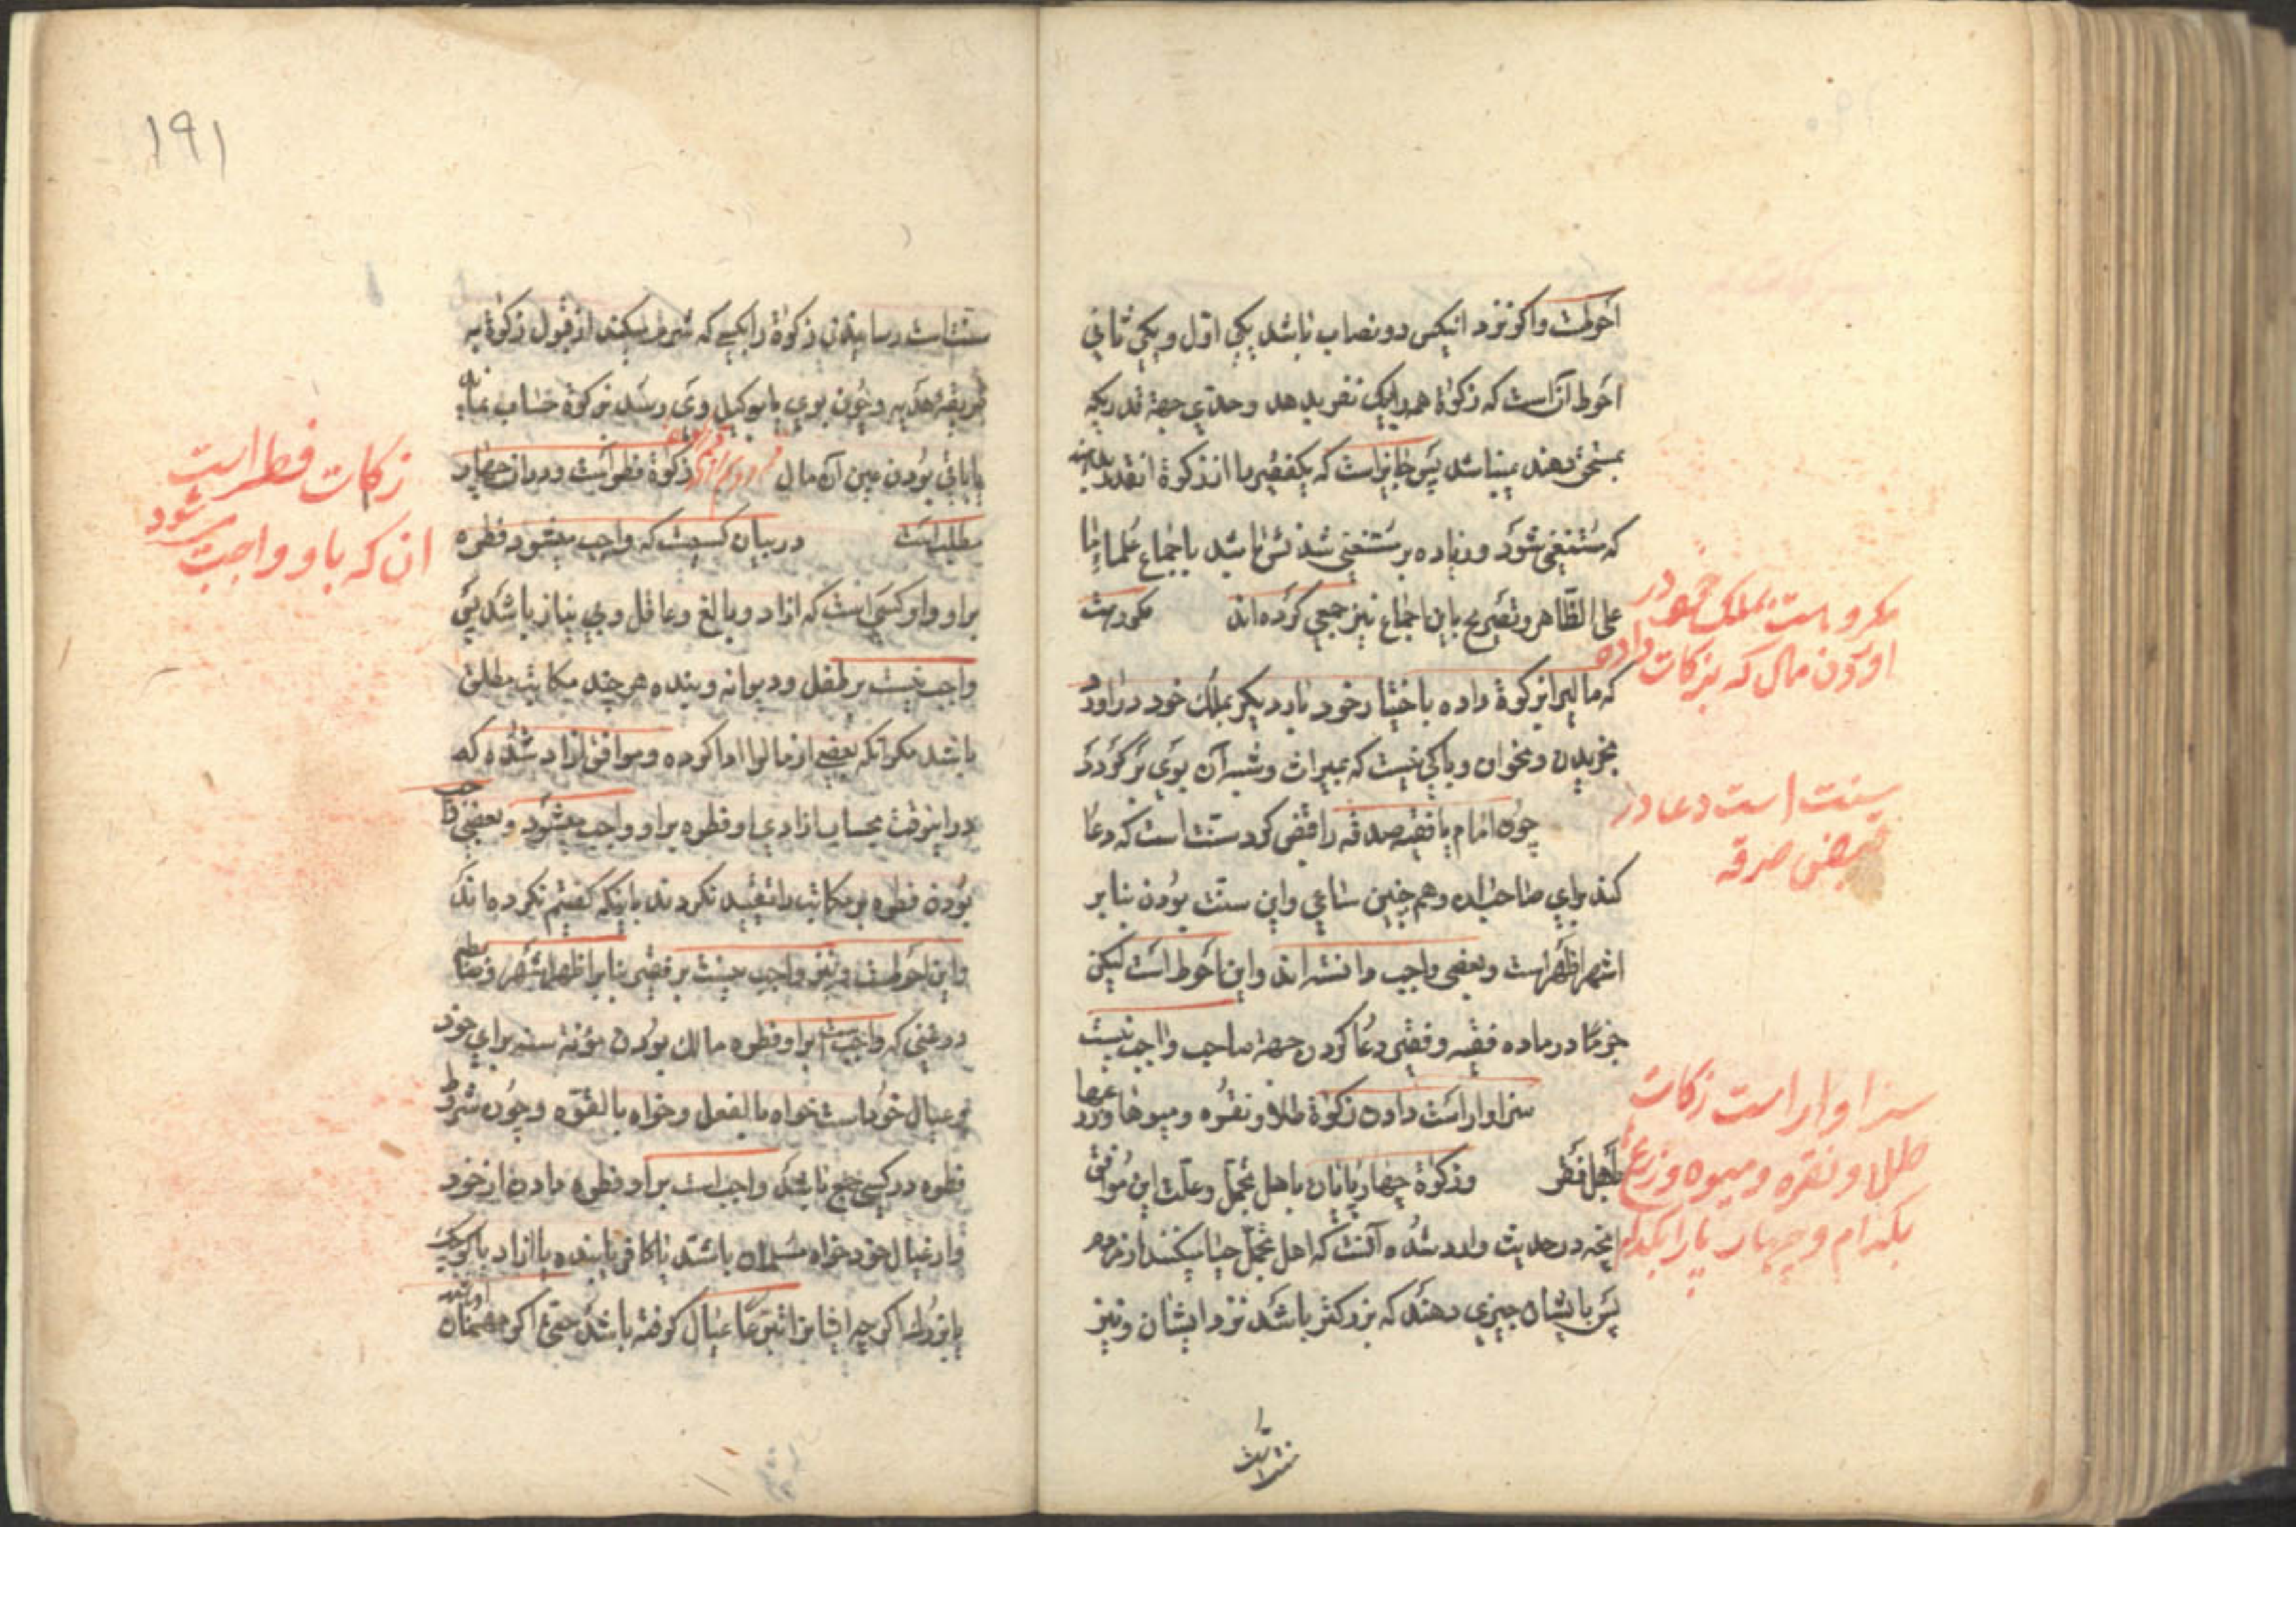 احوطست واکر نزد انیکس دو نصاب باشد یکی اول ویکی ثانی
احوط آن است که زکوة هر دو را بیک نفر بدهد وحدی جهة قدریکه
بمستحق دهند نمیباشد پس جایز است که یکفقیر را از زکوة انقدر بدهند
که مستغنی شود وزیاده بر مستغنی شدنش باشد باجماع علماء ما
علی الظاهر وتصریح باین اجماع نیز جمعی کرده اند مکروهست
که مالیرا بزکوة داده باختیار خود بار دیکر بملک خود در اورد
بخریدن ونحو ان وباکی نیست که بمیراث وشبه آن بوی برکردد
چون امام یا فقیه صدقه را قبض کرد سنت است که دعا
کند برای صاحب ان وهم چنین ساعی واین سنت بودن بنا بر
اشهر اظهر است وبعضی واجب دانسته اند واین احوط است لیکن
جزما در ماده فقیه وفقیر دعا کردن جهة صاحب واجب نیست
سزاوار است دادن زکوة طلا ونقره ومیوها وزرعها
باهل فقر وزکوة چهارپایان باهل تجمل وعلت این موافق
انچه در حدیث وارد شده آنست که اهل تجمل حیا میکنند از مردم
پس بایشان چیزی دهند که بزرکتر باشد نزد ایشان ونیز
سنت است
مکروهست بملک خود در
اوردن مال که بزکات داده
سنت است دعا در
قبض صدقه
سزاوار است زکات
طلا و نقره و میوه و زرع
بکدام و چهار پا را بکدام
۱۹۱
سنت است رسانیدن زکوة را بکسی که شرم میکند از قبول زکوة به
طریقه هدیه وچون بوی یا بوکیل وی رسد بزکوة حساب نماید
با باقی بودن عین آن مال زکوة فطر است ودر ان چهار
مطلب است در بیان کسیست که واجب میشود فطره
بر او واو کسی است که ازاد وبالغ وعاقل وبی نیاز باشد پس
واجب نیست بر طفل ودیوانه وبنده هر چند مکاتب مطلق
باشد مکر انکه بعضی از مالرا ادا کرده وموافق ان ازاد شده که
در اینوقت بحساب ازادی او فطره بر او واجب میشود وبعضی واجب
بودن فطره بر مکاتب را تقیید نکردند باینکه کفتیم نکرده مانند
واین احوطست ونیز واجب نیست بر فقیر بنابر اظهر اشهر وضابطه
در غنی که واجبست بر او فطره مالک بودن مؤنة سنه برای خود
وعیال خود است خواه بالفعل وخواه بالقوه وچون شروط
فطره در کسی جمع باشد واجب است بر او فطره دادن از خود
واز عیال خود خواه مسلمان باشند یا کافر یا بنده یا ازاد یا کوچک
یا بزرک اکرچه ایشانرا تبرعا عیال کرفته باشد حتی اکر مهمان او باشند
زکات فطر است
ان که باو واجب شود